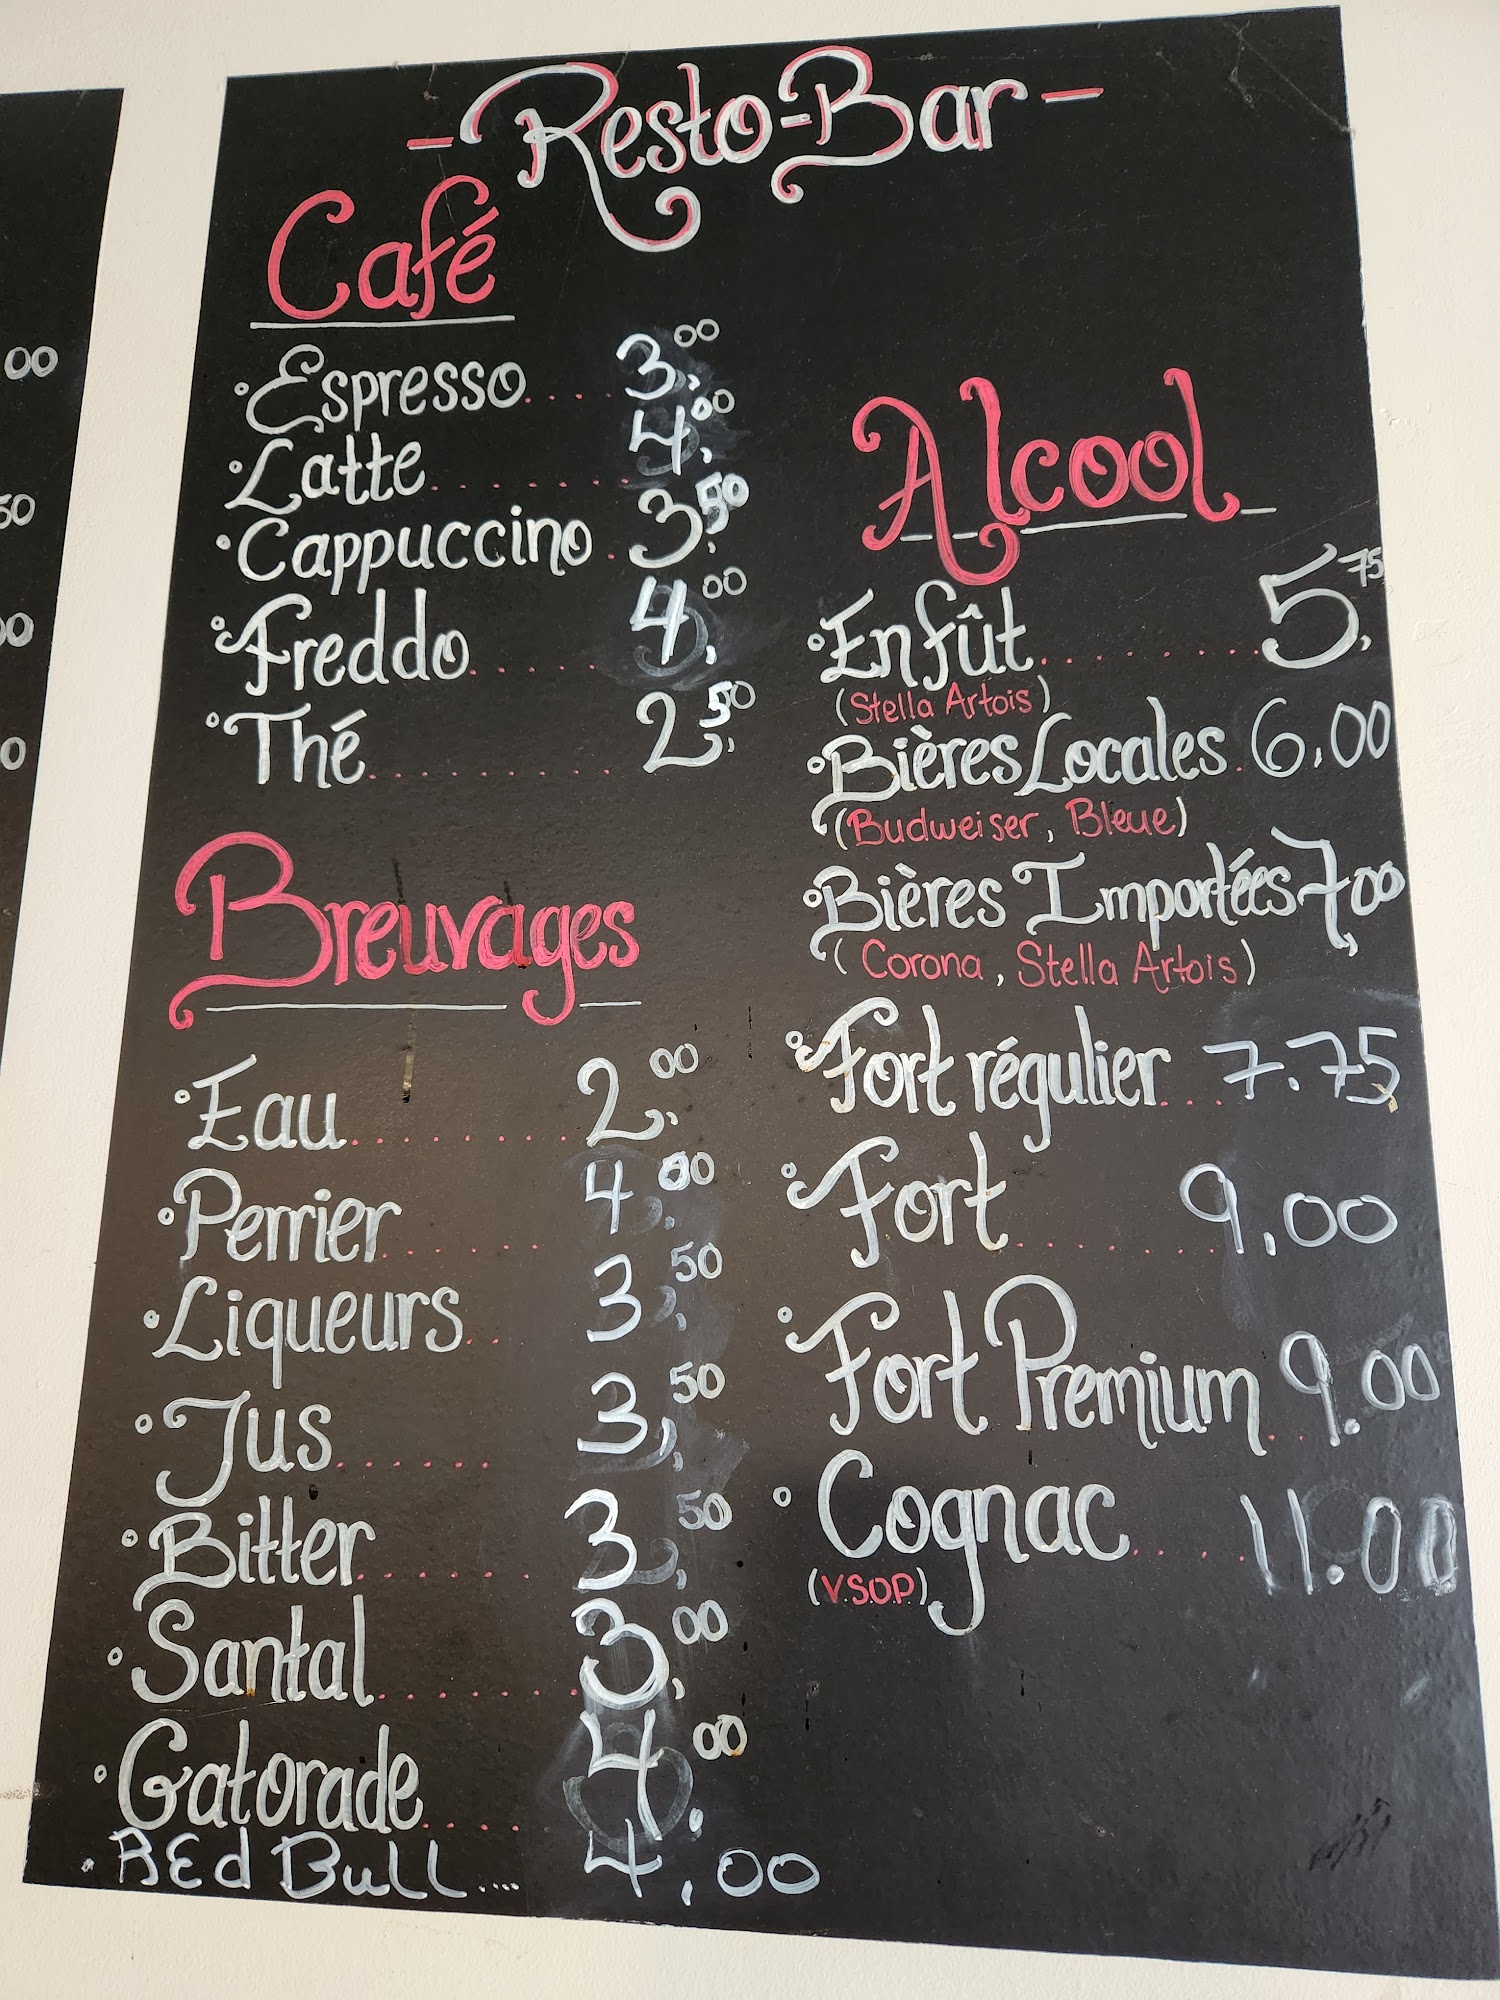 - Resto-Bar -
Café
Espresso.....3,00
Latte........4,00
Cappuccino.3,50
Freddo......4,00
Thé..........2,50
Breuvages
Eau.........2,00
Perrier......4,00
Liqueurs.. 3,50
Jus...... 3,50
Bitter...... 3,50
Santal.......3,00
Gatorade.... 4,00
REd Bull.... 4,00
Alcool
En fût.........5,75
(Stella Artois)
Bières Locales.6,00
(Budweiser, Bleue)
Bières Importées 7,00
(Corona, Stella Artois)
Fort régulier...7.75
Fort.......9,00
Fort Premium..9.00
Cognac....11.00
(V.S.O.P)
00
50
00
0